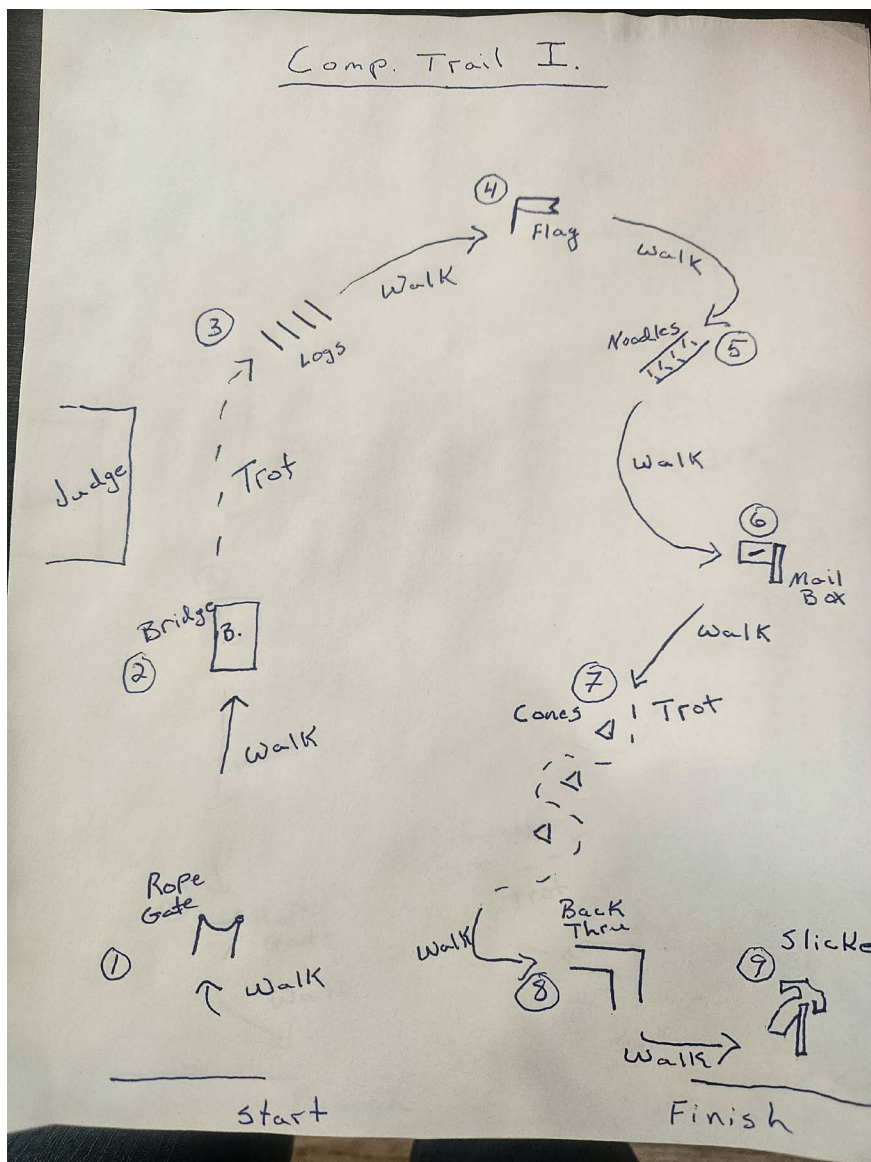 Comp. Trail I.
4
Flag
Walk
Walk
3
Logs
Noodles
5
Judge
Trot
Walk
6
Mail
Box
Bridge
B.
2
Walk
7
Cones
Trot
Walk
Rope
Gate
1
Walk
Back
Thru
Walk
8
9
Slicke
Walk
Start
Finish